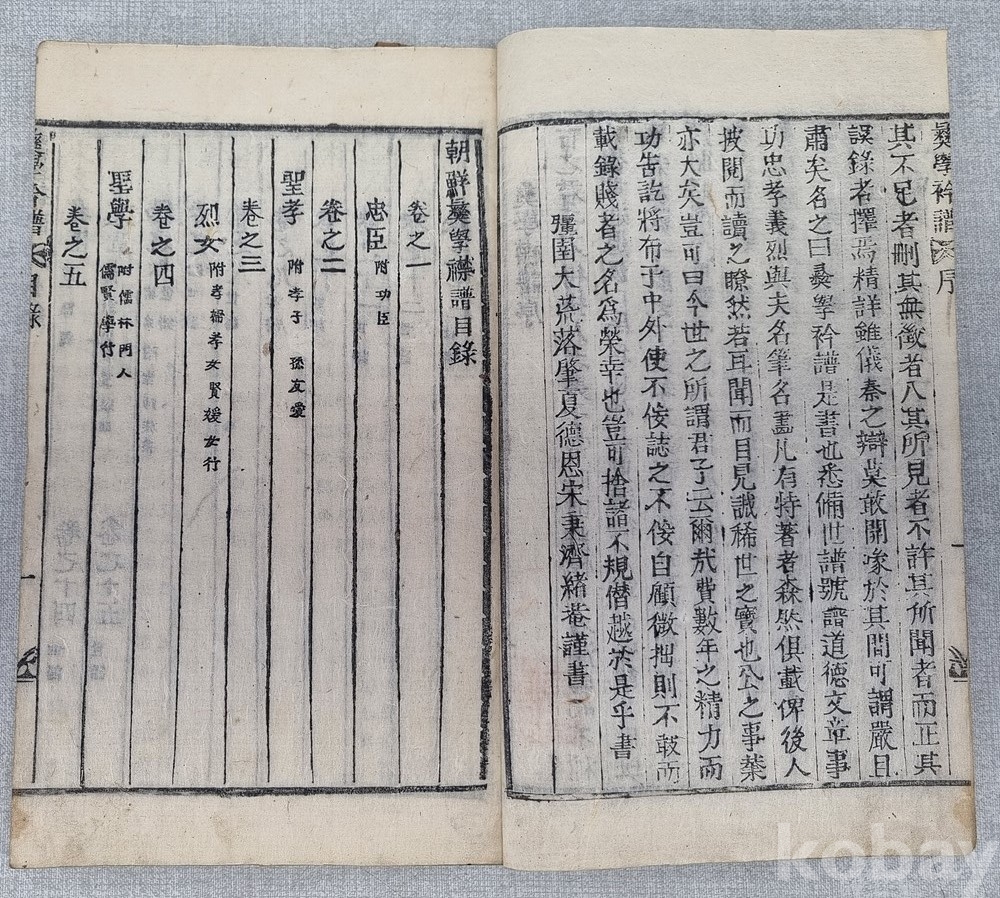 彛學衿譜 序
其不足者刪其無徵者八其所見者不許其所聞者而正其
誤錄者擇焉精詳雖儀秦之辯莫敢開喙於其間可謂嚴且
肅矣名之曰彛學衿譜是書也悉備世譜號譜道德文章事
功忠孝義烈與夫名筆名畵凡有特著者森然俱載俾後人
披閱而讀之瞭然若耳聞而目見誠稀世之寶也公之事業
亦大矣豈可曰今世之所謂君子云爾哉費數年之精力而
功告訖將布于中外使不佞誌之不佞自顧微拙則不敢而
載錄賤者之名爲榮幸也豈可捨諸不規僭越於是乎書
彊圉大荒落肇夏德恩宋秉濟緖菴謹書
朝鮮彛學襟譜目錄
卷之一
忠臣 附 功臣
卷之二
聖孝 附 孝子 孫友愛
卷之三
烈女 附 孝婦 孝女 賢媛 女行
卷之四
聖學 附 儒林 門人 儒賢 學行
卷之五
目錄 一
kobay